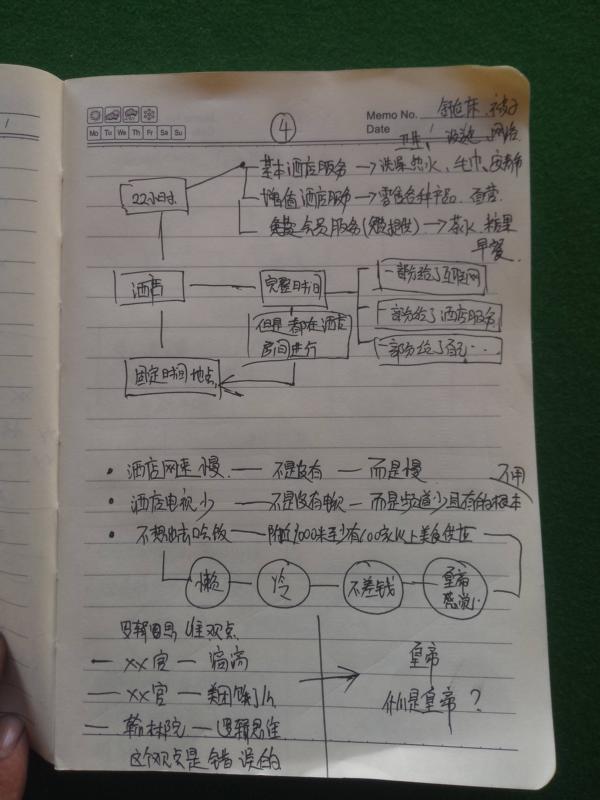 Memo No.
Mo Tu We Th Fr Sa Su
Date
④
卫生、设施、网络
基本酒店服务 → 洗澡热水、毛巾、
22小时
增值酒店服务 → 零售各种产品
会员服务(免费提供) → 茶水 糖果
早餐
酒店
完整时间
一部分给了互联网
但是都在酒店
房间进行
一部分给了酒店服务
一部分给了自己…
固定时间地点
• 酒店网速慢 — 不是没有 — 而是慢
不用
• 酒店电视少 — 不是没有电视 — 而是频道少且有的根本
• 不想出去吃饭 — 附近1000米至少有100家以上美食供应
懒
冷
不差钱
皇帝
感觉
逻辑思维 观点
— XX官 — 滴滴
— XX官 — 美团
— 翰林院 — 逻辑思维
这个观点是错误的
皇帝
你们是皇帝?